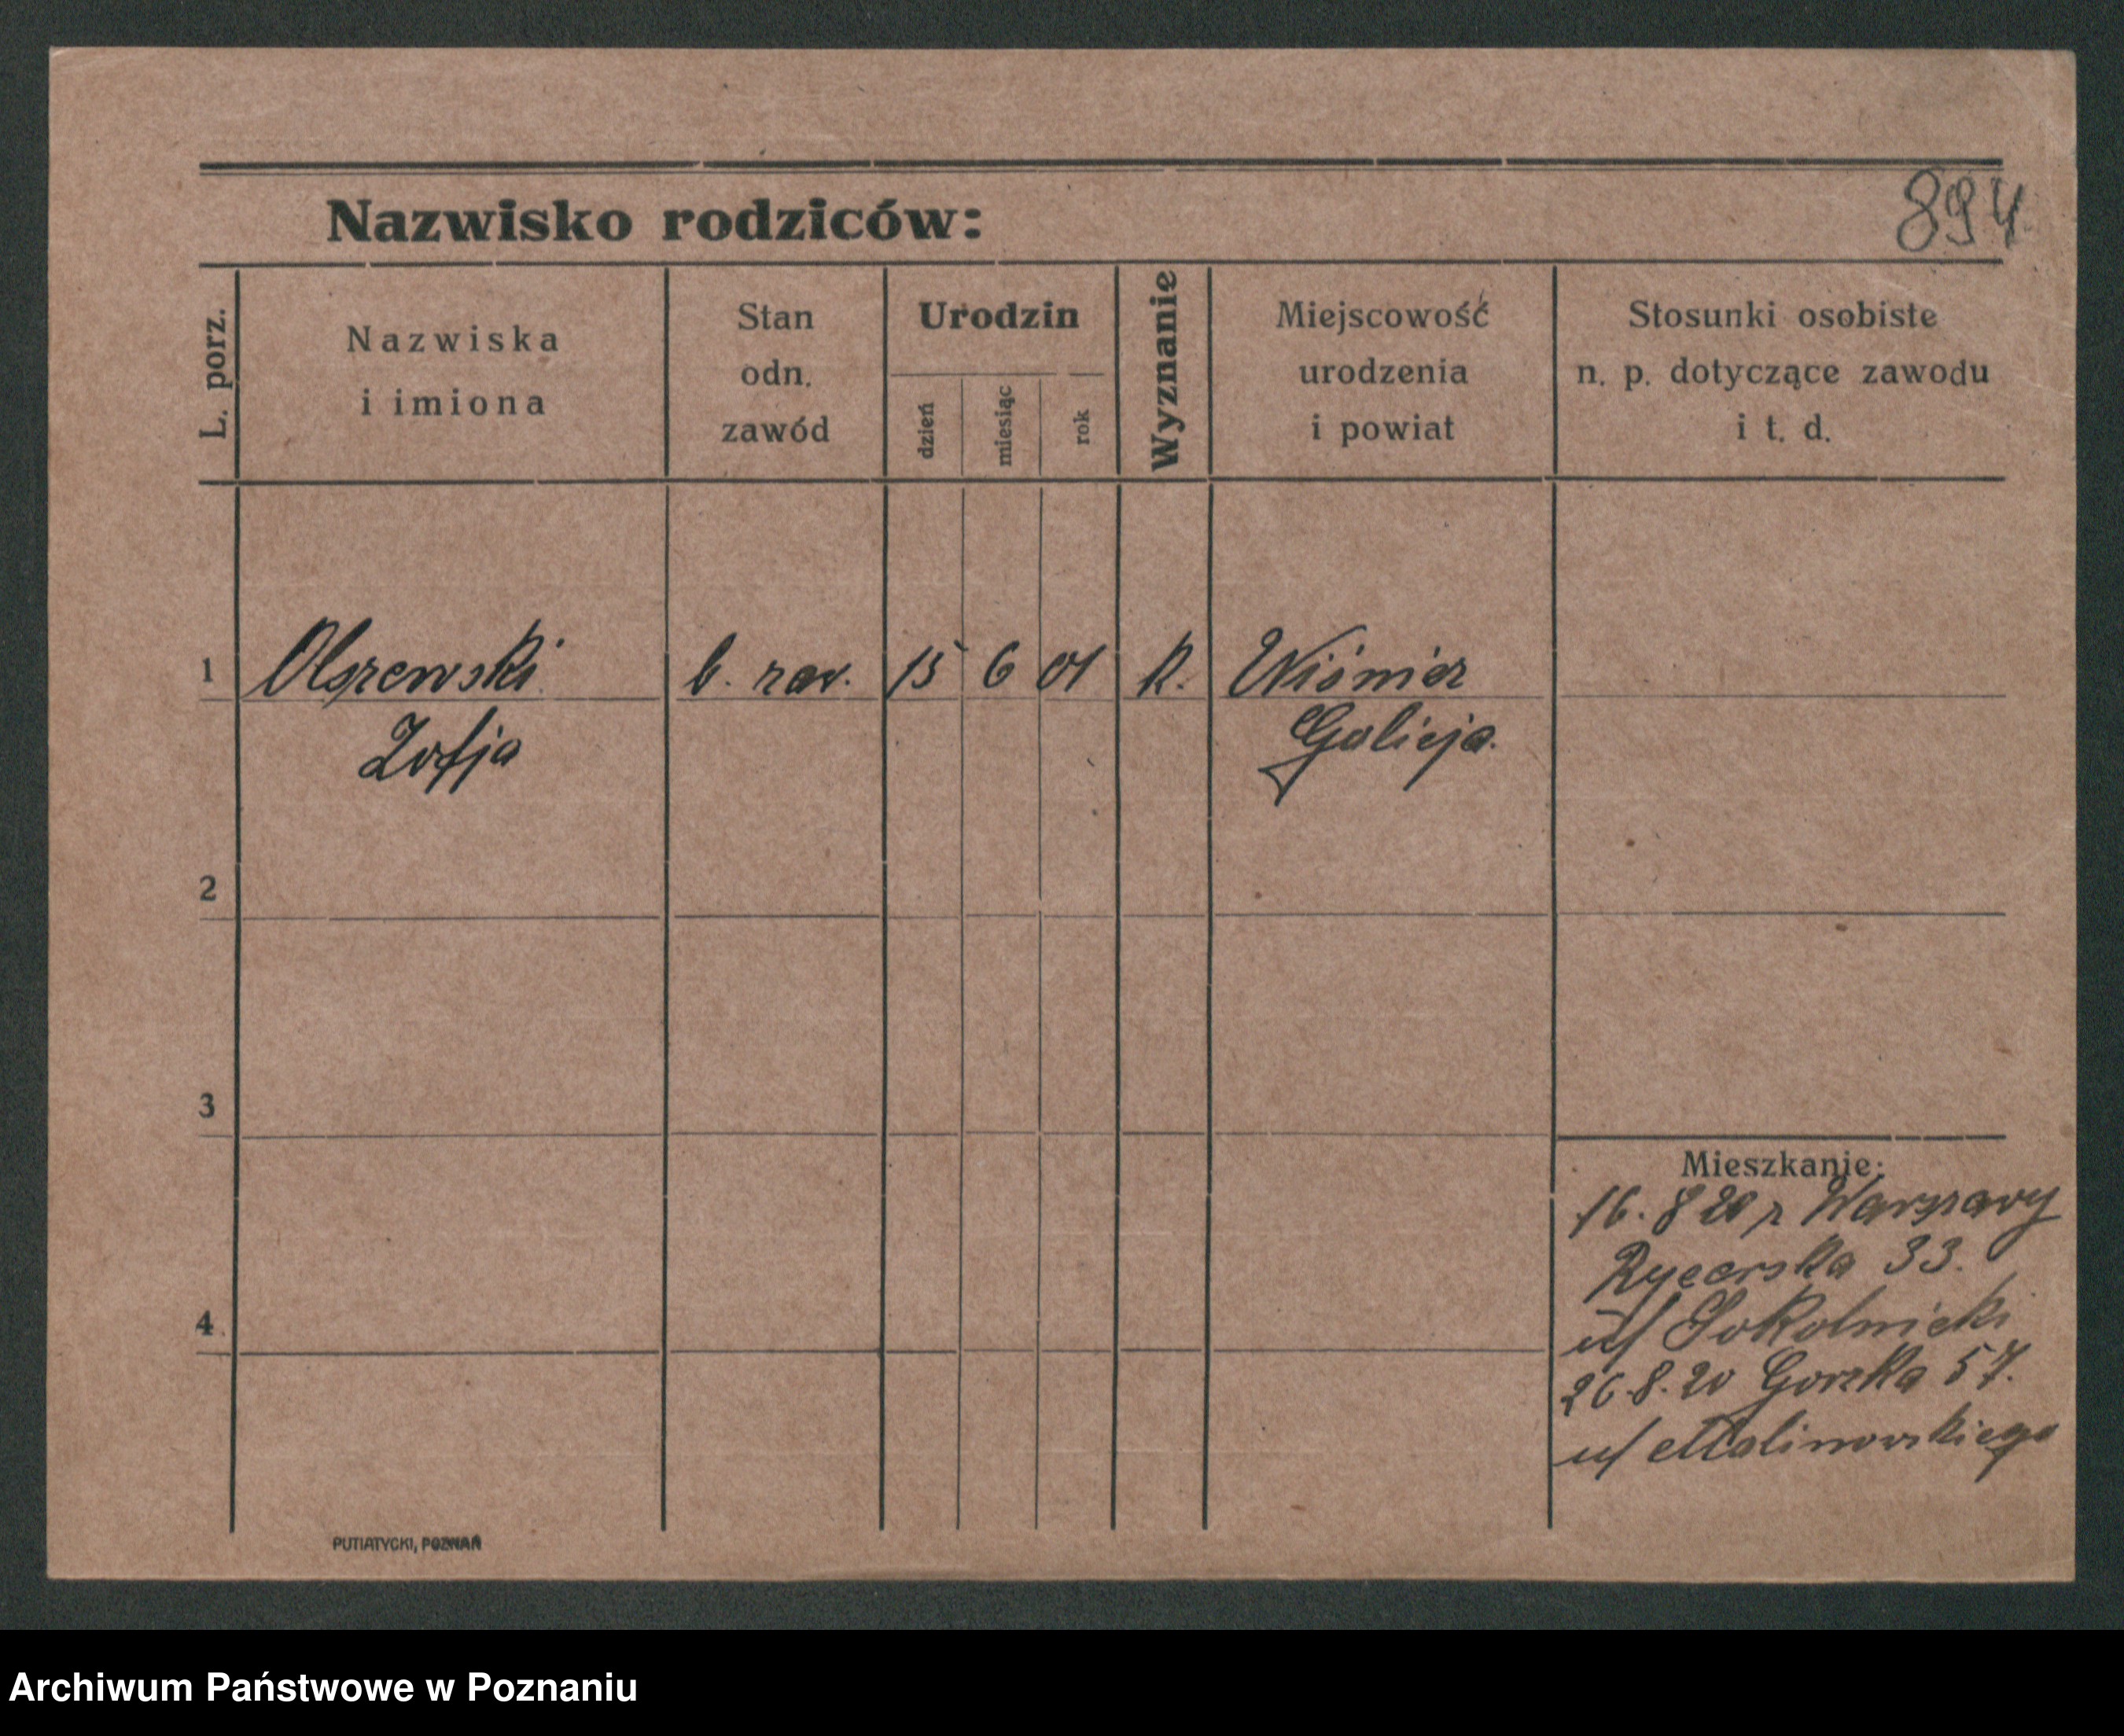 894
Nazwisko rodziców:
L. porz.
Nazwiska
i imiona
Stan
odn.
zawód
Urodzin
dzień
miesiąc
rok
Wyznanie
Miejscowość
urodzenia
i powiat
Stosunki osobiste
n. p. dotyczące zawodu
i t. d.
1 Olszewski b. zaw. 15 6 01 R.
Zofja Galicja.
2
3
4
Mieszkanie:
16. 8 20 z Warszawy
Rycerska 33.
u/ Sokolnicki
26.8.20 Gorzka 57.
u/ Malinowskiego
PUTIATYCKI, POZNAŃ
Archiwum Państwowe w Poznaniu